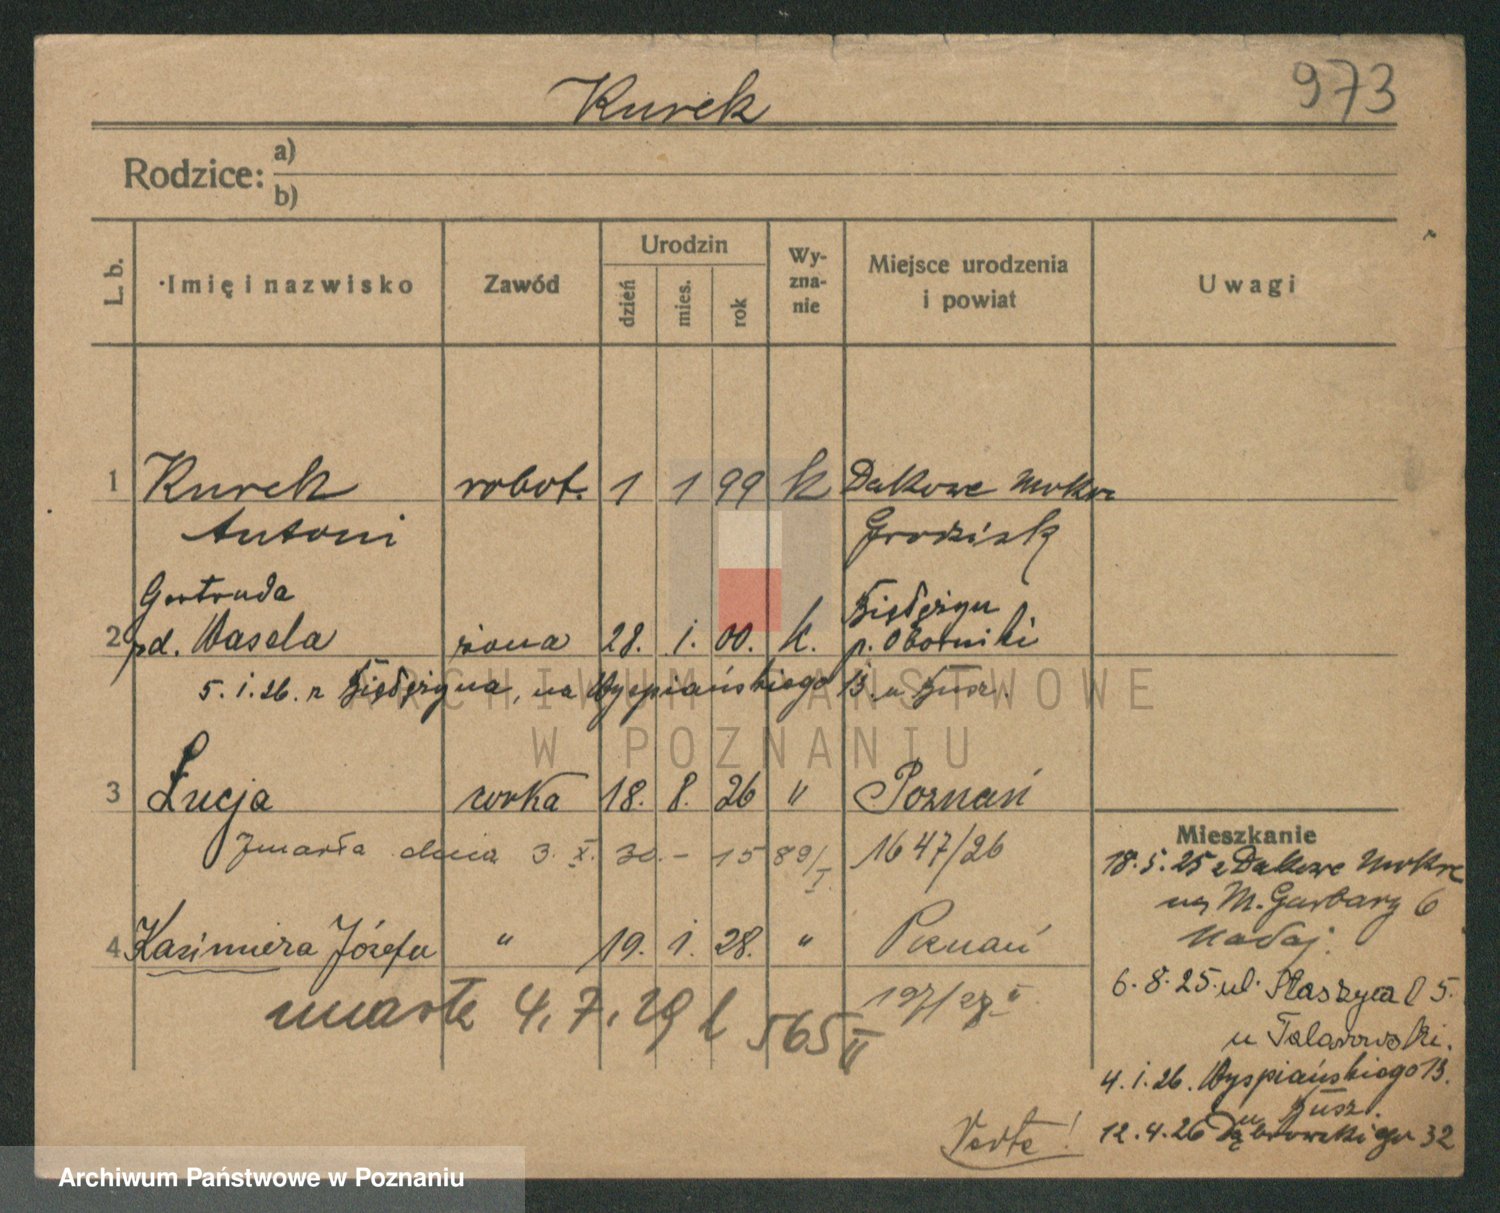 Kurek
973
Rodzice: a)
b)
L. b.
Imię i nazwisko
Zawód
Urodzin
dzień
mies.
rok
Wy-
zna-
nie
Miejsce urodzenia
i powiat
Uwagi
1 Kurek robot. 1 1 99 k Dakowe Mokre
Antoni Grodzisk
Gertruda
2 pd. Wasela żona 28. 1. 00. k. p. Oborniki
5. 1. 26. z na Wyspiańskiego 13. u
3 Łucja córka 18. 8. 26 " Poznań
Zmarła dnia 3. X. 30. - 15 89/I. 1647/26
4 Kazimiera Józefa " 19. 1. 28. " Poznań
umarła 4. 7. 29 l 565 II
Mieszkanie
18. 5. 25 z Dakowe Mokre
na M. Garbary 6
Nadaj.
6. 8. 25. ul. Staszyca 5.
u
4. 1. 26. Wyspiańskiego 13.
u
12. 4. 26 Dąbrowskiego 32
Verte!
ARCHIWUM PAŃSTWOWE
W POZNANIU
Archiwum Państwowe w Poznaniu